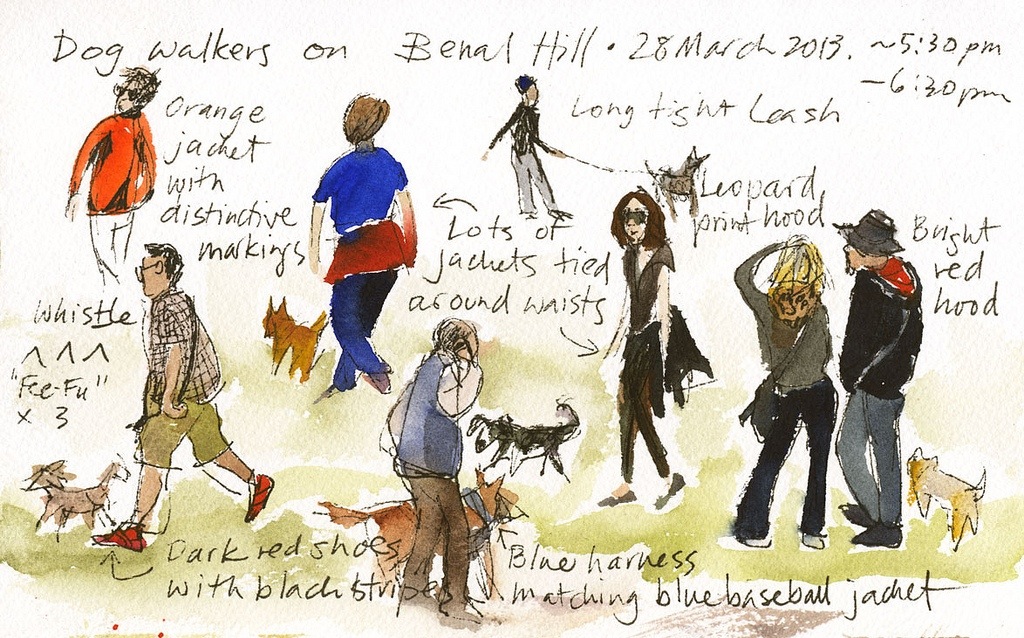 Dog walkers on Benal Hill · 28 March 2013. ~5:30pm
-6:30pm
Orange
jacket
with
distinctive
markings
Long tight leash
Leopard
print hood
Lots of
jackets tied
around waists
Bright
red
hood
Whistle
^ ^ ^
"Fee-Fu"
x 3
Dark red shoes
with black stripes
Blue harness
matching blue baseball jacket